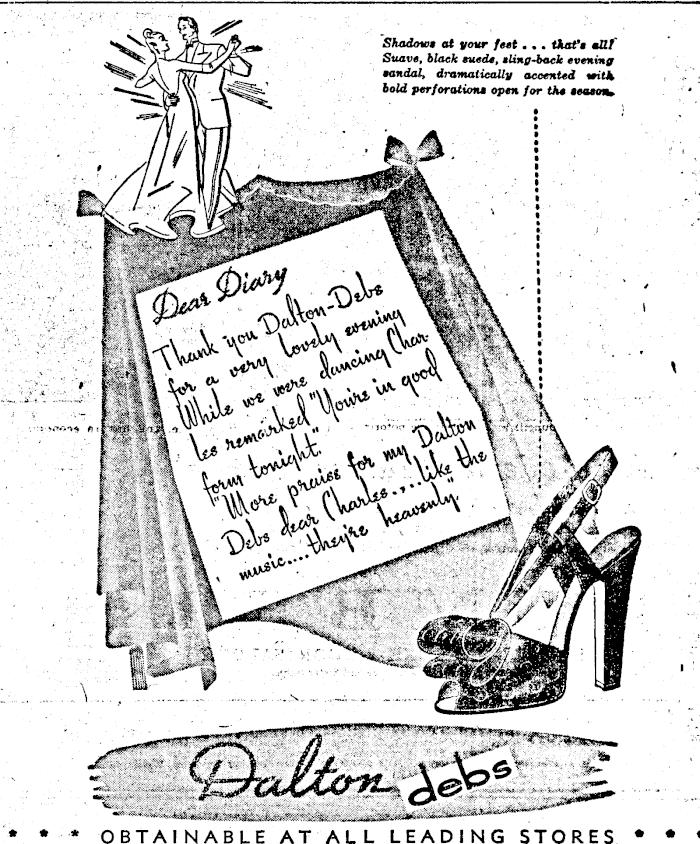 Shadows at your feet . . . that's all!
Suave, black suede, sling-back evening
sandal, dramatically accented with
bold perforations open for the season.
Dear Diary
Thank you Dalton-Debs
for a very lovely evening
While we were dancing Char-
les remarked "You're in good
form tonight."
"More praise for my Dalton
Debs dear Charles....like the
music....they're heavenly."
Dalton debs
* * * OBTAINABLE AT ALL LEADING STORES * * *